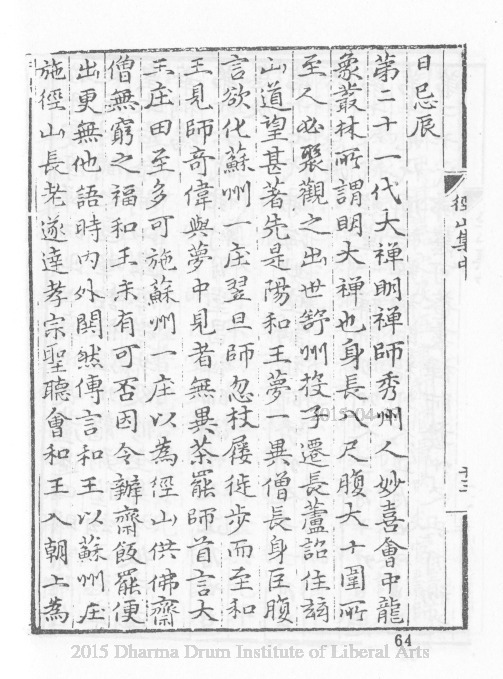 日忌辰
第二十一代大禅明禅師秀州人妙喜會中龍
象叢林所謂明大禅也身長八尺腹大十圍所
至人必聚觀之出世舒州投子遷長蘆詔住茲
山道望甚著先是陽和王夢一異僧長身巨腹
言欲化蘇州一庄翌旦師忽杖屨徒步而至和
王見師奇偉與夢中見者無異茶罷師首言大
王庄田至多可施蘇州一庄以為徑山供佛齋
僧無窮之福和王未有可否因令辦齋飯罷便
出更無他語時內外鬨然傳言和王以蘇州庄
施徑山長老遂達孝宗聖聽會和王入朝上為
徑山集中
十二
2015-04
64
2015 Dharma Drum Institute of Liberal Arts